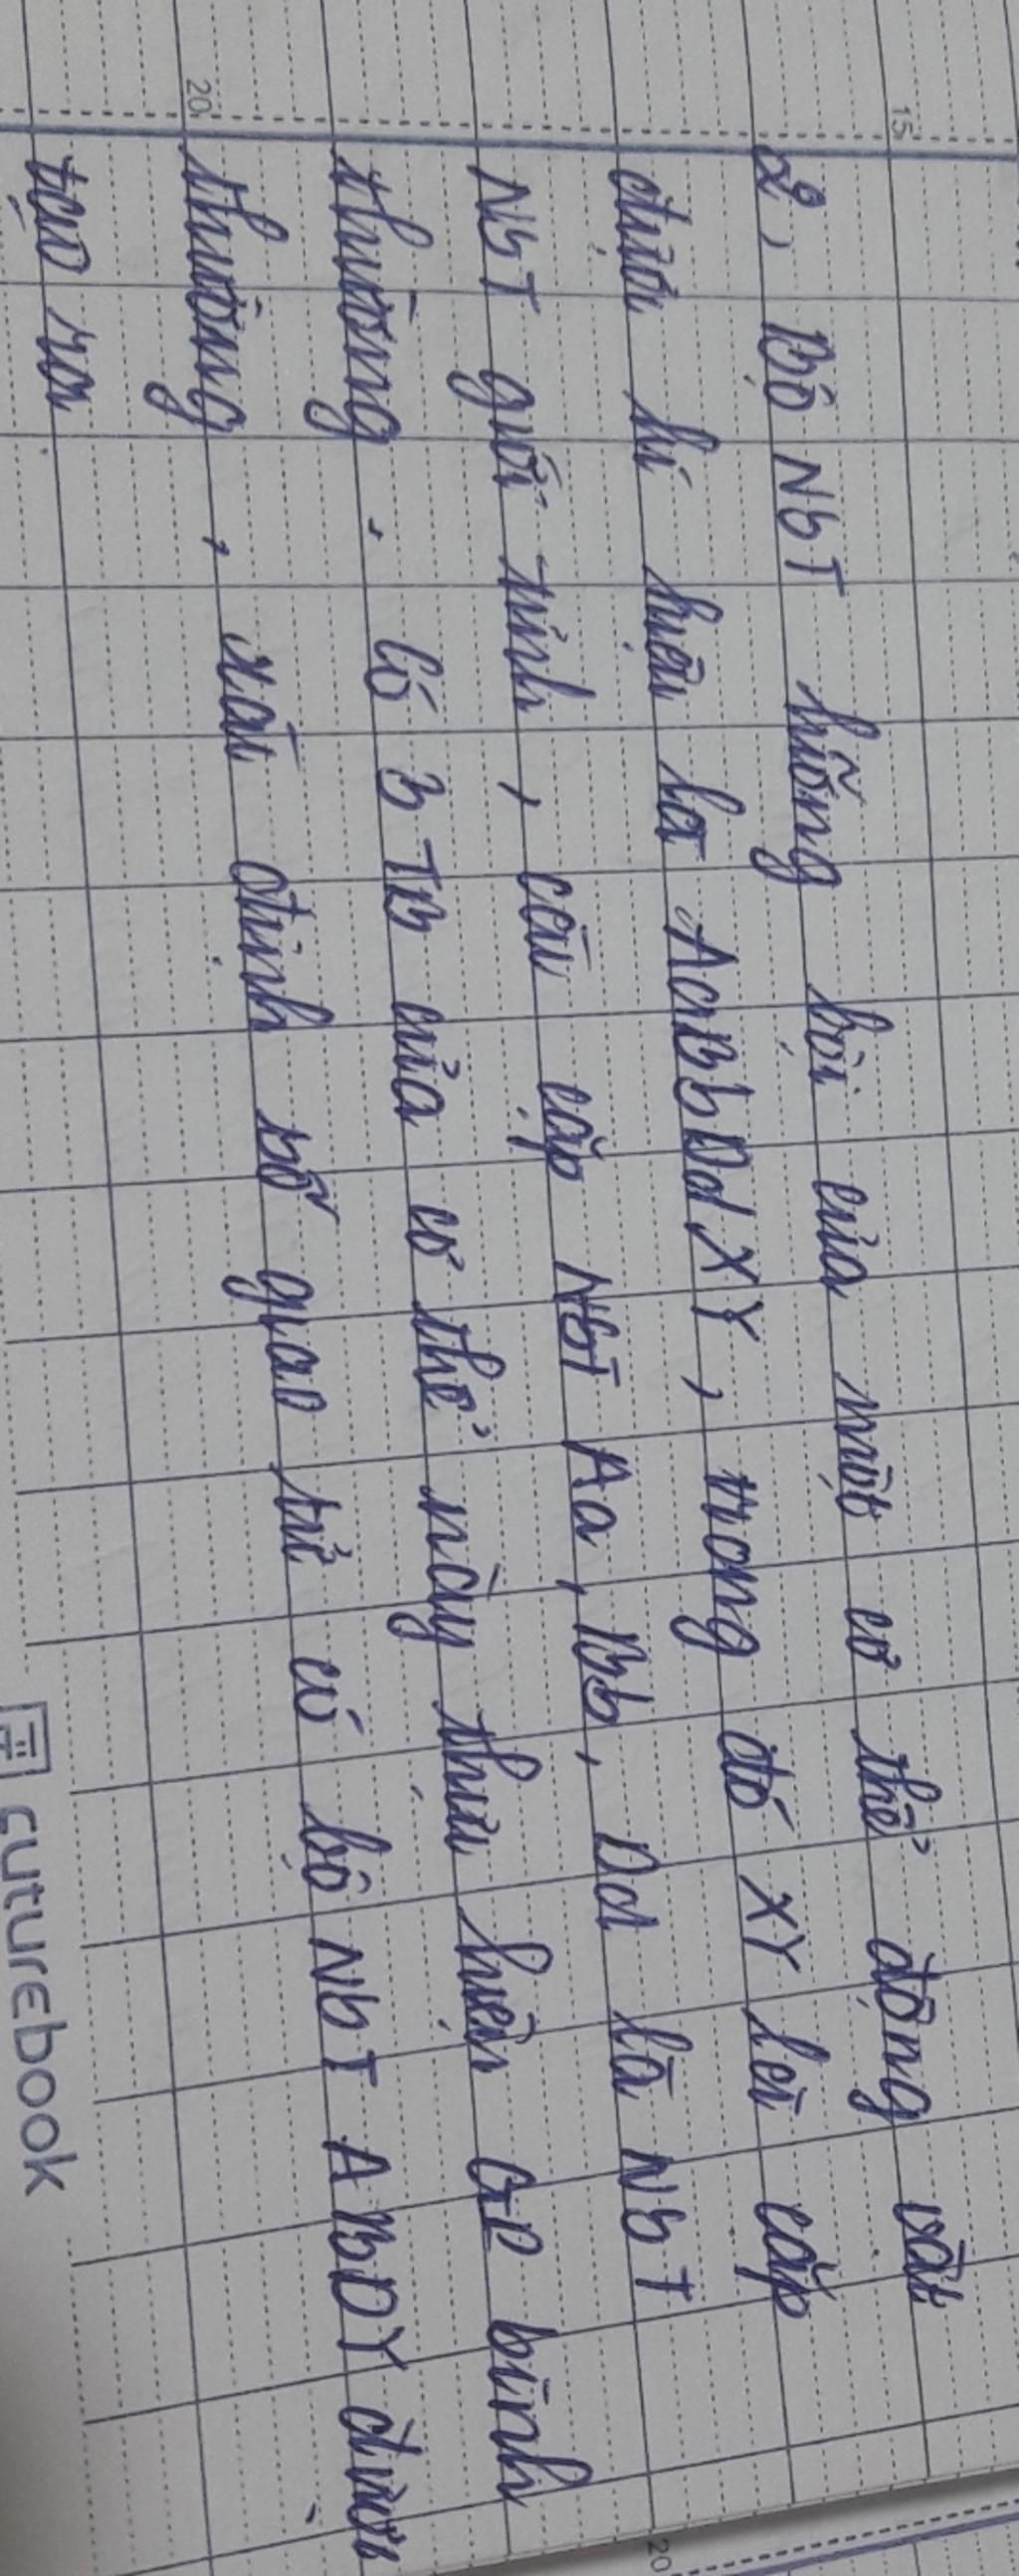 2, Bộ NST lưỡng bội của một cơ thể động vật
được kí hiệu là AaBbDdXY, trong đó XY là cặp
NST giới tính, các cặp NST Aa, Bb, Dd là NST
thường. Có 3 TB của cơ thể này thực hiện GP bình
thường, xác định số giao tử có bộ NST ABDY được
tạo ra
20
15
20
futurebook